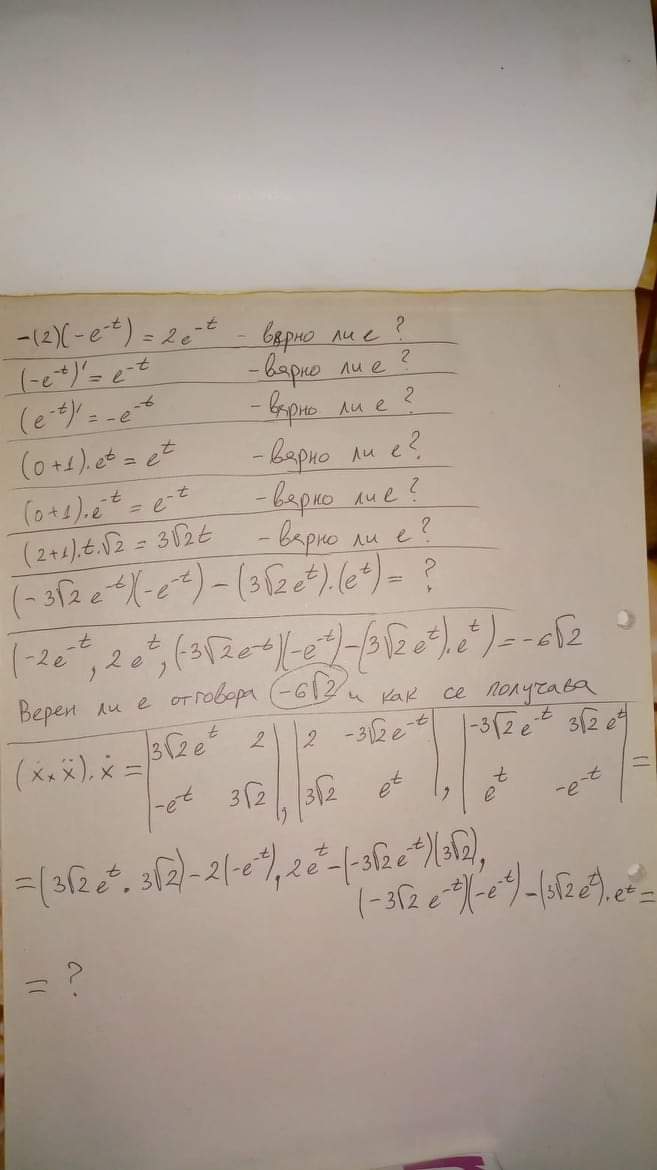 -(2)(-e^-t) = 2e^-t - вярно ли е?
(-e^-t)' = e^-t - вярно ли е?
(e^-t)' = -e^-t - вярно ли е?
(0+1).e^t = e^t - вярно ли е?
(0+1).e^-t = e^-t - вярно ли е?
(2+1).t.√2 = 3√2t - вярно ли е?
(-3√2 e^-t)(-e^-t) - (3√2 e^t).(e^t) = ?
(-2e^-t, 2e^t, (-3√2e^-t)(-e^-t)-(3√2e^t).e^t) = -6√2
Верен ли е отговора -6√2 и как се получава
(ẋ×ẍ).ẋ = |3√2e^t 2|, |2 -3√2e^-t|, |-3√2e^-t 3√2e^t| =
|-e^t 3√2| |3√2 e^t| |e^t -e^-t|
= (3√2e^t . 3√2) - 2(-e^-t), 2e^t - (-3√2e^-t)(3√2),
(-3√2 e^-t)(-e^-t) - (3√2e^t).e^t =
= ?